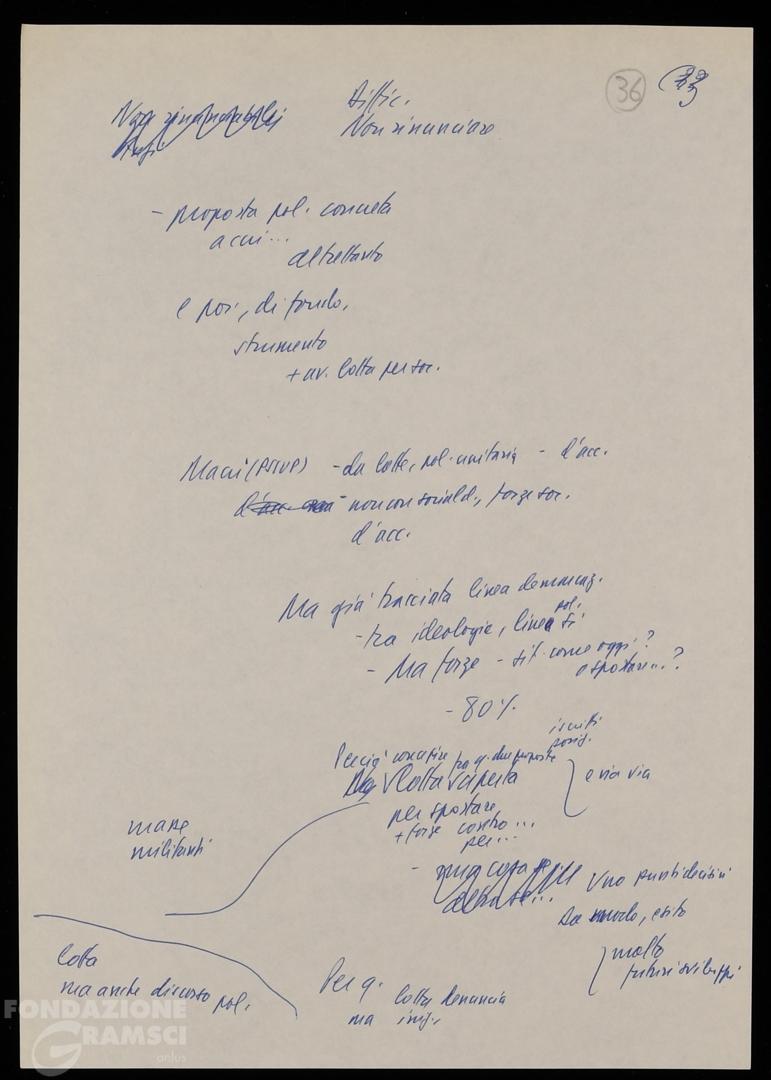 36
33
Diffic.
Non rinunciare
- proposta pol. concreta
a cui...
altrettanto
e poi, di fondo,
strumento
+ av. lotta per soc.
(PSIUP) - da lotte, pol. unitaria - d'acc.
non con sociald., forze soc.
d'acc.
Ma già tracciata linea demarcaz.
- tra ideologie, linea pol. sì
- Ma forze - sit. come oggi?
o spostare...?
- 80%
iscritti
Perciò
lotta aperta
e via via
per spostare
+ forze contro...
per...
masse
militanti
Uno punti decisivi
Da modo, esito
molto
futuri sviluppi
lotta
ma anche discorso pol.
Per q. lotta denuncia
ma
FONDAZIONE
GRAMSCI
onlus